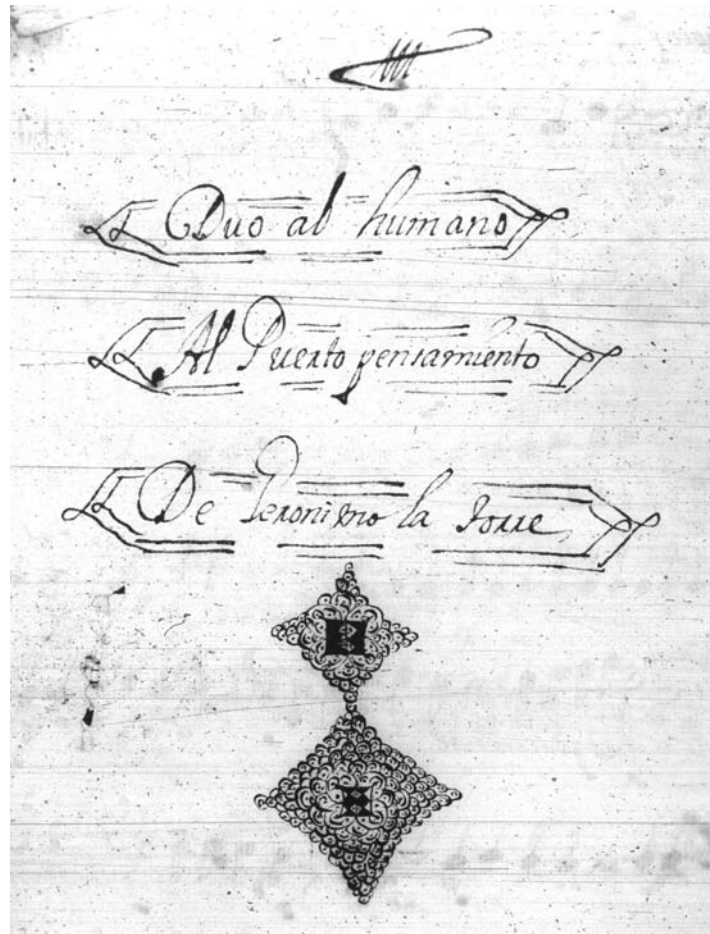 Duo al humano
Al Puerto pensamiento
De Geronimo la torre